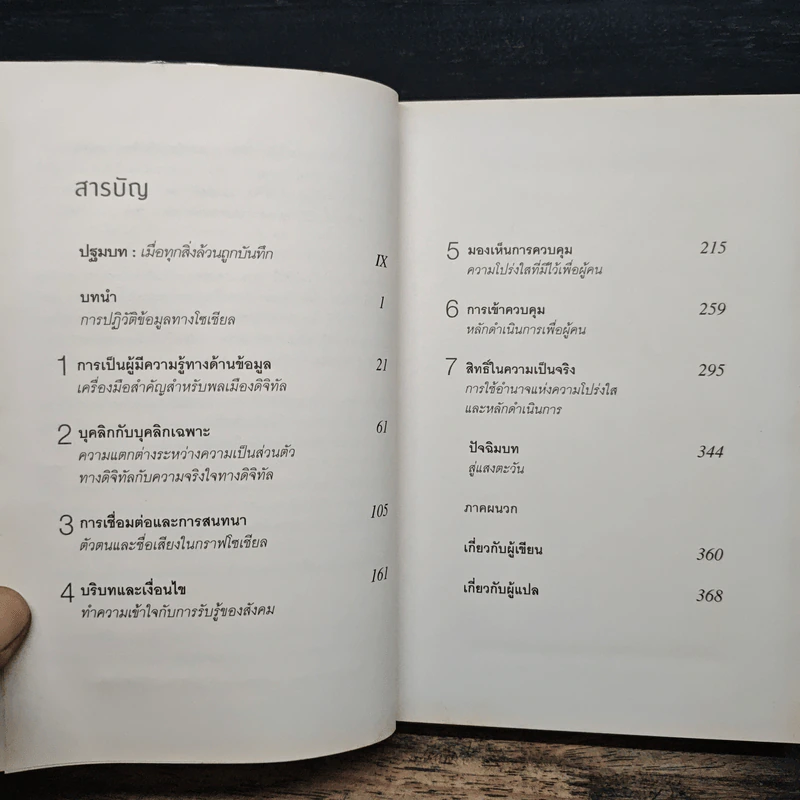 สารบัญ
ปฐมบท : เมื่อทุกสิ่งล้วนถูกบันทึก IX
บทนำ 1
การปฏิวัติข้อมูลทางโซเชียล
1 การเป็นผู้มีความรู้ทางด้านข้อมูล 21
เครื่องมือสำคัญสำหรับพลเมืองดิจิทัล
2 บุคลิกกับบุคลิกเฉพาะ 61
ความแตกต่างระหว่างความเป็นส่วนตัว
ทางดิจิทัลกับความจริงใจทางดิจิทัล
3 การเชื่อมต่อและการสนทนา 105
ตัวตนและชื่อเสียงในกราฟโซเชียล
4 บริบทและเงื่อนไข 161
ทำความเข้าใจกับการรับรู้ของสังคม
5 มองเห็นการควบคุม 215
ความโปร่งใสที่มีไว้เพื่อผู้คน
6 การเข้าควบคุม 259
หลักดำเนินการเพื่อผู้คน
7 สิทธิ์ในความเป็นจริง 295
การใช้อำนาจแห่งความโปร่งใส
และหลักดำเนินการ
ปัจฉิมบท 344
สู่แสงตะวัน
ภาคผนวก
เกี่ยวกับผู้เขียน 360
เกี่ยวกับผู้แปล 368